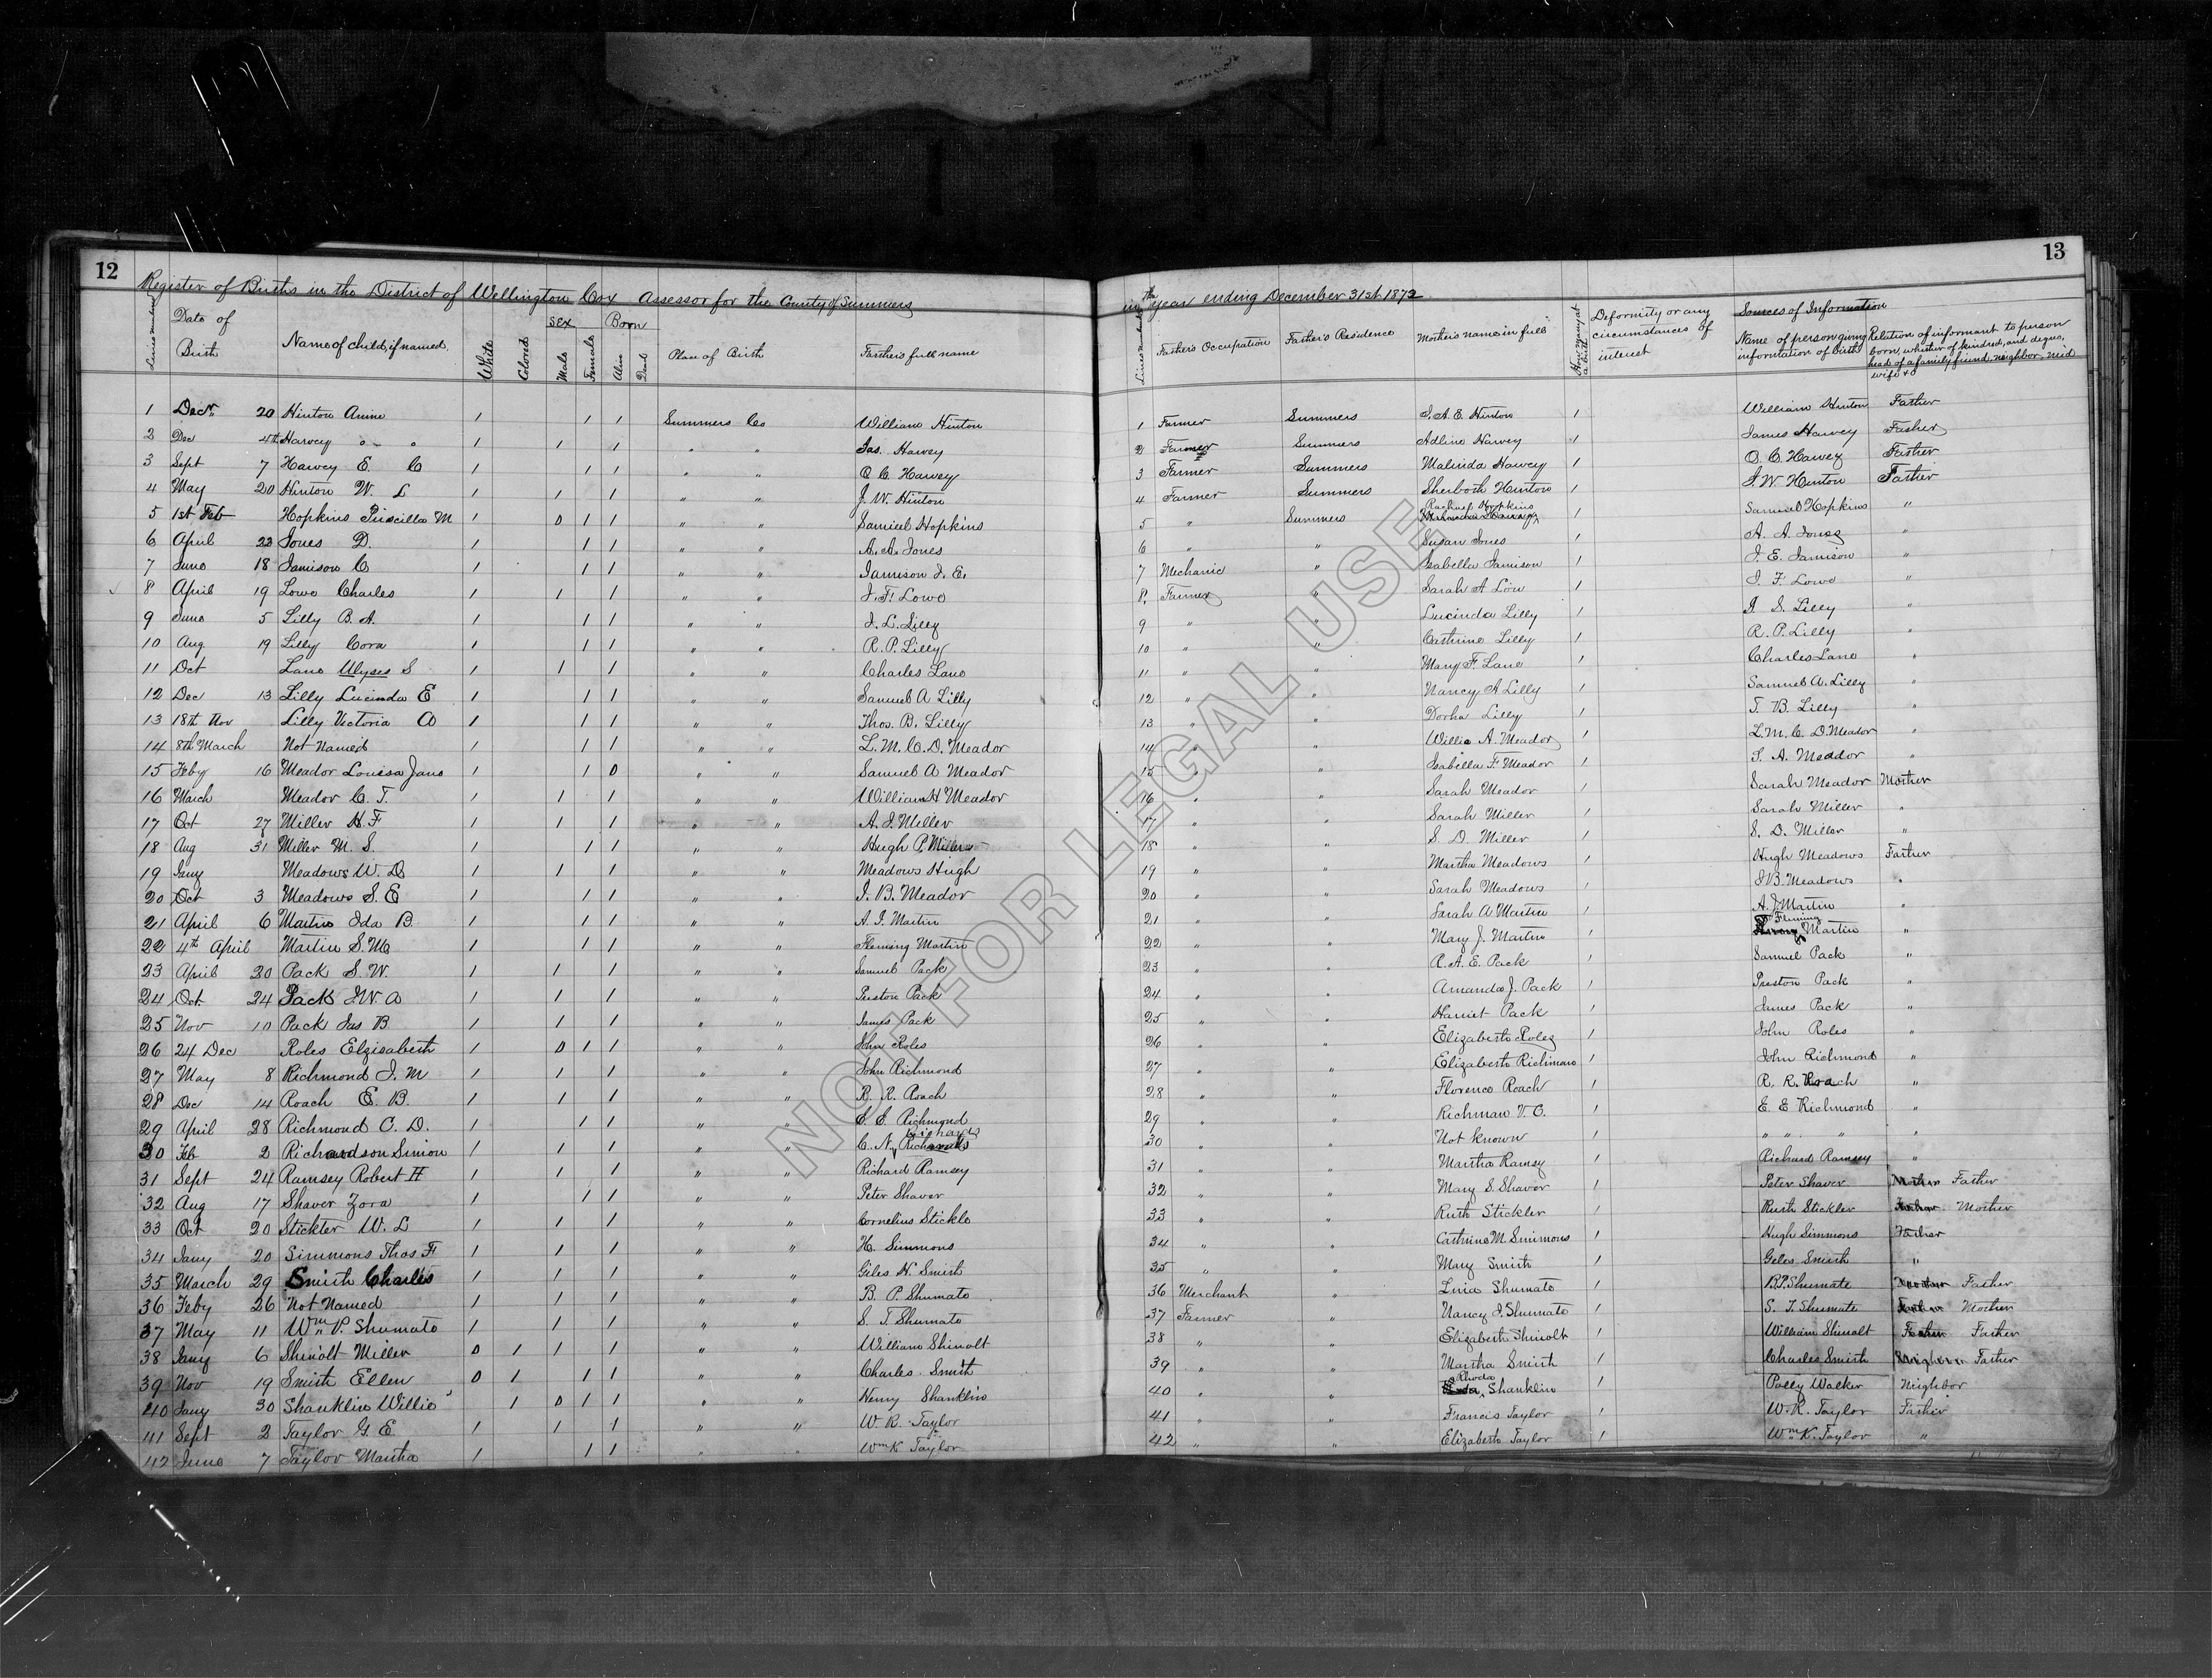 12
Register of Births in the District of Wellington Cox Assessor for the County of Summers
Date of Birth Name of child, if named White Colored Sex Male Female Born Alive Dead Place of Birth Farther's full name
1 Decr. 20 Hinton Annie 1 1 1 Summers Co William Hinton
2 Dec 4th Harvey 1 1 1 " " Jas. Harvey
3 Sept 7 Harvey E. C 1 1 1 " " O C Harvey
4 May 20 Hinton W. L 1 1 1 " " J. W. Hinton
5 1st Feb Hopkins Priscilla M 1 0 1 1 " " Samuel Hopkins
6 April 23 Jones D. 1 1 1 " " A. A. Jones
7 June 18 Jamison C 1 1 1 " " Jamison J. E.
8 April 19 Lowe Charles 1 1 1 " " J. F. Lowe
9 June 5 Lilly B. A. 1 1 1 " " J. L. Lilly
10 Aug 19 Lilly Cora 1 1 1 " " R. P. Lilly
11 Oct Lane Ulyses S 1 1 1 " " Charles Lane
12 Dec 13 Lilly Lucinda E 1 1 1 " " Samuel A Lilly
13 18th Nov Lilly Victoria 1 1 1 " " Thos. B. Lilly
14 8th March Not Named 1 1 1 " " L. M. C. D. Meador
15 Feby 16 Meador Louisa Jane 1 1 0 " " Samuel A Meador
16 March Meador C. T. 1 1 1 " " William H Meador
17 Oct 27 Miller H. F 1 1 1 " " A. J. Miller
18 Aug 31 Miller M. S. 1 1 1 " " Hugh P. Miller
19 Jany Meadows W. D 1 1 1 " " Meadows Hugh
20 Oct 3 Meadows S. E 1 1 1 " " J. B. Meador
21 April 6 Martin Ida B. 1 1 1 " " A. J. Martin
22 4th April Martin S. M 1 1 1 " " Fleming Martin
23 April 20 Pack S. W. 1 1 1 " " Samuel Pack
24 Oct 24 Pack J W A 1 1 1 " " Preston Pack
25 Nov 10 Pack Jas B. 1 1 1 " " James Pack
26 24 Dec Roles Elzisabeth 1 0 1 1 " " John Roles
27 May 8 Richmond J. M 1 1 1 " " John Richmond
28 Dec 14 Roach E. B. 1 1 1 " " R. R. Roach
29 April 28 Richmond C. D. 1 1 1 " " E. E. Richmond
30 Feb 2 Richardson Simion 1 1 1 " " C. N. Richards
31 Sept 24 Ramsey Robert H 1 1 1 " " Richard Ramsey
32 Aug 17 Shaver Zora 1 1 1 " " Peter Shaver
33 Oct 20 Stickler W. L 1 1 1 " " Cornelius Stickle
34 Jany 20 Simmons Thos F 1 1 1 " " H. Simmons
35 March 29 Smith Charles 1 1 1 " " Giles H. Smith
36 Feby 26 Not Named 1 1 1 " " B. P. Shumate
37 May 11 Wm. P. Shumate 1 1 1 " " S. T Shumate
38 Jany 6 Shinolt Miller 0 1 1 1 " " William Shinolt
39 Nov 19 Smith Ellen 0 1 1 1 " " Charles Smith
40 Jany 30 Shanklin Willie 1 0 1 1 " " Henry Shanklin
41 Sept 2 Taylor G. E. 1 1 1 " " W. R. Taylor
42 June 7 Taylor Martha 1 1 1 " " Wm K Taylor
13
in the year ending December 31st 1872
Farther's Occupation Father's Residence Mother's name in full How many at a birth Deformity or any circumstances of interest Sources of Information
Name of person giving information of birth Relation of informant to person born, whether of kindred, and degree, head of a family, friend, neighbor, mid wife &c
1 Farmer Summers J. A. E. Hinton 1 William Hinton Father
2 Farmer Summers Adline Harvey 1 James Harvey Father
3 Farmer Summers Malinda Harvey 1 O. C. Harvey Father
4 Farmer Summers Sherboth Hinton 1 J. W. Hinton Farther
5 " Summers Rachael Hopkins 1 Samuel Hopkins "
6 " " Susan Jones 1 A. A. Jones "
7 Mechanic " Isabella Jamison 1 J. E. Jamison "
8. Farmer " Sarah A Low 1 J. F. Lowe "
9 " " Lucinda Lilly 1 J. S. Lilly "
10 " " Cathrine Lilly 1 R. P. Lilly "
11 " " Mary F. Lane 1 Charles Lane "
12 " " Nancy A Lilly 1 Samuel A. Lilly "
13 " " Dorha Lilly 1 T. B. Lilly "
14 " " Willie A. Meador 1 L. M. C. D. Meador "
15 " " Isabella F. Meador 1 S. A. Meador "
16 " " Sarah Meador 1 Sarah Meador Mother
17 " " Sarah Miller 1 Sarah Miller "
18 " " S D Miller 1 S. D. Miller "
19 " " Martha Meadows 1 Hugh Meadows Farther
20 " " Sarah Meadows 1 J B. Meadows "
21 " " Sarah A Martin 1 A. J. Martin "
22 " " Mary J. Martin 1 Fleming Martin "
23 " " R. A. E. Pack 1 Samuel Pack "
24 " " Amanda J. Pack 1 Preston Pack "
25 " " Harriet Pack 1 James Pack "
26 " " Elizabeth Roles 1 John Roles "
27 " " Elizabeth Richmond 1 John Richmond "
28 " " Florence Roach 1 R. R. Roach "
29 " " Richman V. C. 1 E. E Richmond "
30 " " Not known 1 " " " "
31 " " Martha Ramsey 1 Richard Ramsey "
32 " " Mary S. Shaver 1 Peter Shaver Mother Father
33 " " Ruth Stickler 1 Ruth Stickler Mother
34 " " Cathrine M. Simmons 1 Hugh Simmons Father
35 " " Mary Smith 1 Giles Smith "
36 Merchant " Liria Shumate 1 B. P. Shumate Father
37 Farmer " Nancy J. Shumate 1 S. T. Shumate Mother
38 " Elizabeth Shinolt 1 William Shinolt Father
39 " " Martha Smith 1 Charles Smith Neighbor Father
40 " " Rhoda Shanklin 1 Polly Walker Neighbor
41 " " Francis Taylor 1 W. R. Taylor Father
42 " " Elizabeth Taylor 1 Wm. K. Taylor "
NOT FOR LEGAL USE